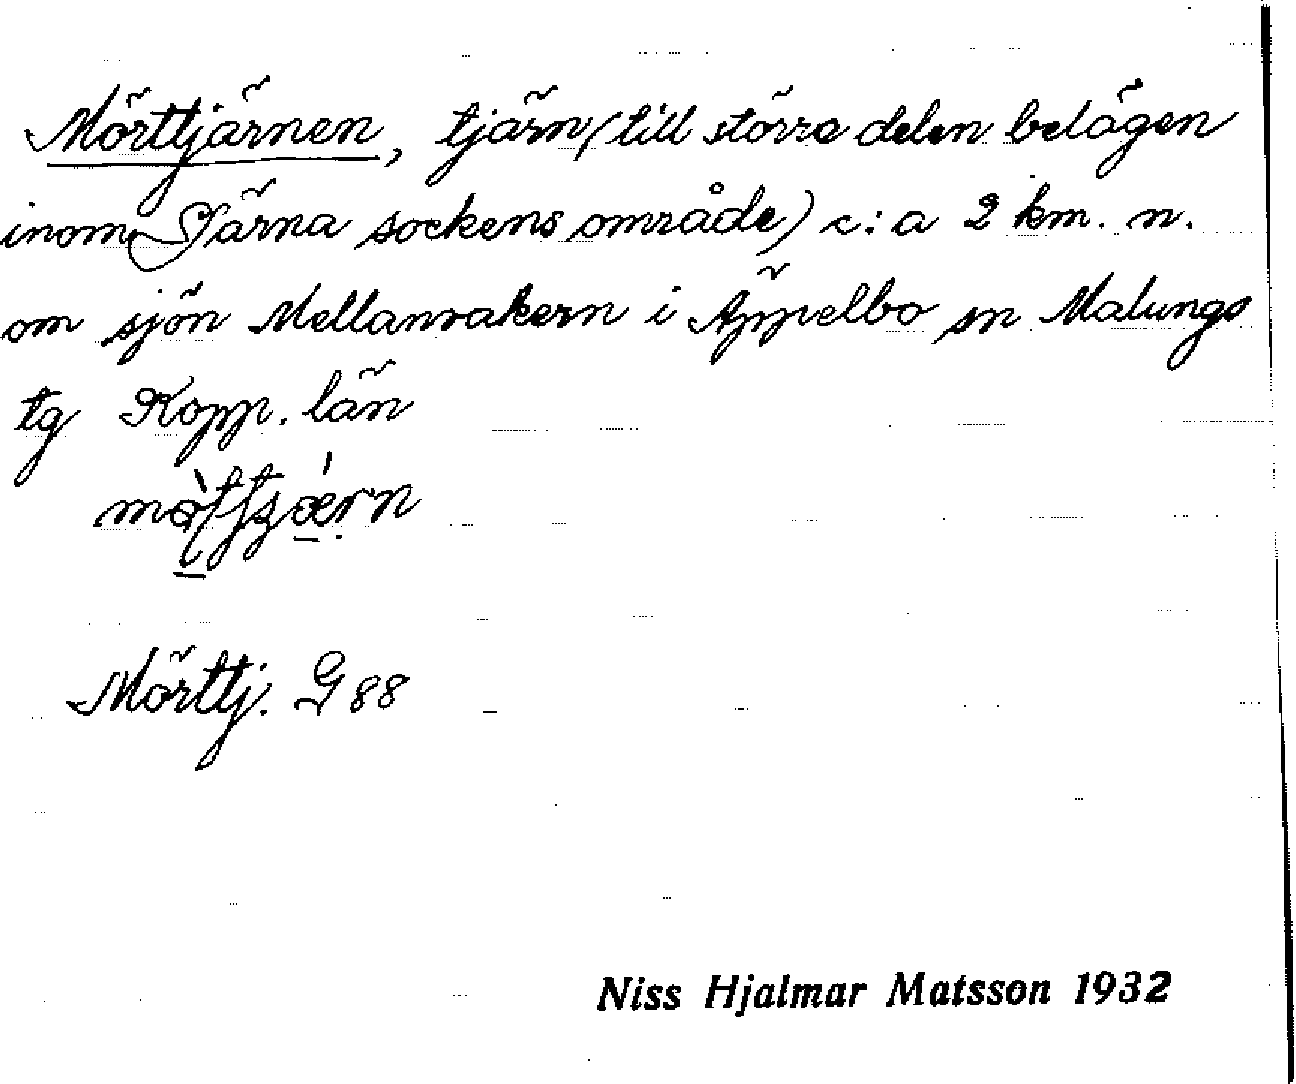 Mörttjärnen, tjärn (till större delen belägen
inom Järna sockens område) c:a 2 km. n.
om sjön Mellanvakern i Äppelbo sn Malungs
tg Kopp. län
Mörttj. G 88
Niss Hjalmar Matsson 1932